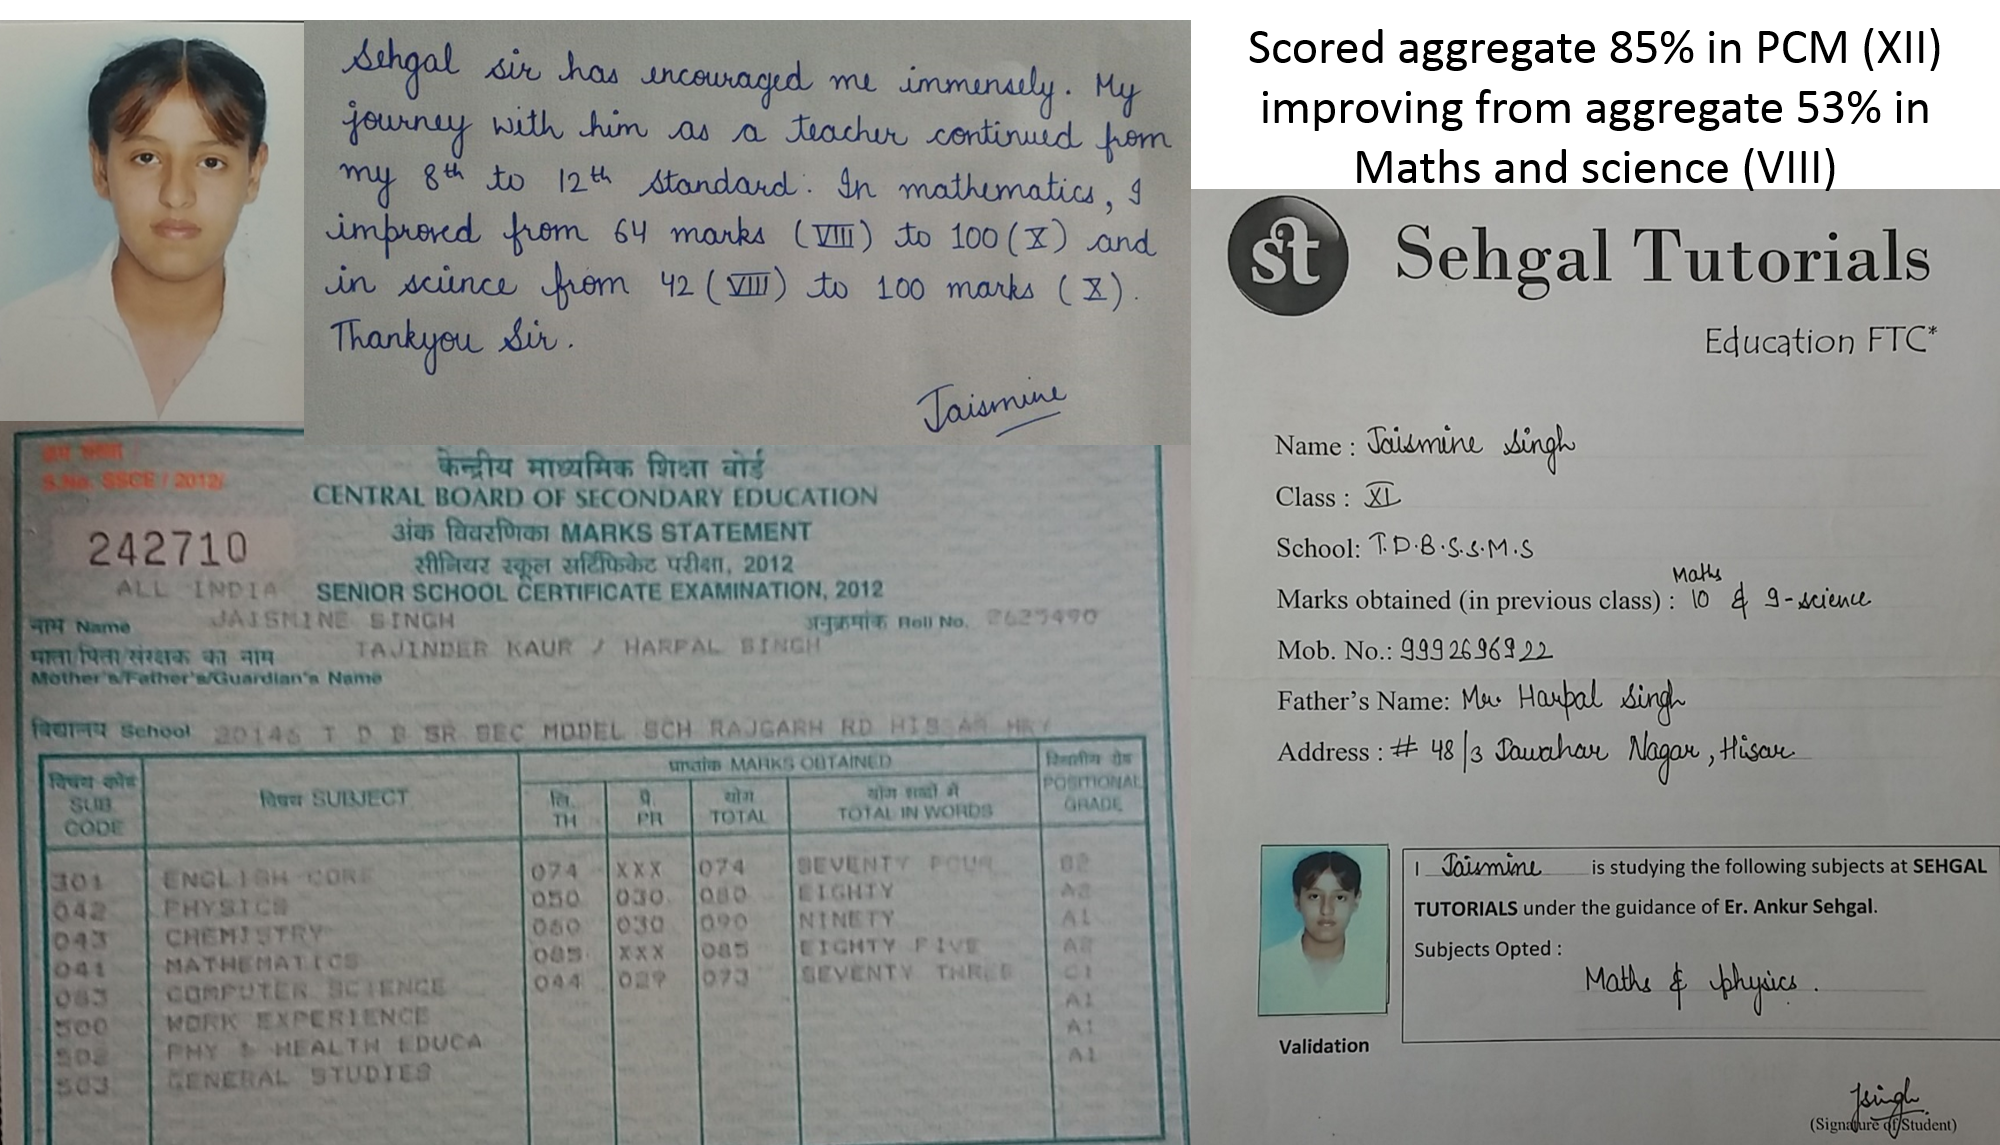 Sehgal sir has encouraged me immensely. My
journey with him as a teacher continued from
my 8th to 12th standard. In mathematics, I
improved from 64 marks (VIII) to 100 (X) and
in science from 42 (VIII) to 100 marks (X).
Thankyou Sir.
Jaismine
Scored aggregate 85% in PCM (XII)
improving from aggregate 53% in
Maths and science (VIII)
S.No. SSCE / 2012/
242710
ALL INDIA
केन्द्रीय माध्यमिक शिक्षा बोर्ड
CENTRAL BOARD OF SECONDARY EDUCATION
अंक विवरणिका MARKS STATEMENT
सीनियर स्कूल सर्टिफिकेट परीक्षा, 2012
SENIOR SCHOOL CERTIFICATE EXAMINATION, 2012
नाम Name JAISMINE SINGH अनुक्रमांक Roll No. 2625490
माता/पिता/संरक्षक का नाम TAJINDER KAUR / HARPAL SINGH
Mother's/Father's/Guardian's Name
विद्यालय School 20146 T D B SR SEC MODEL SCH RAJGARH RD HISAR HRY
विषय कोड विषय SUBJECT प्राप्तांक MARKS OBTAINED
SUB. CODE लि. TH प्रै. PR योग TOTAL योग शब्दों में TOTAL IN WORDS POSITIONAL GRADE
301 ENGLISH CORE 074 XXX 074 SEVENTY FOUR B2
042 PHYSICS 050 030 080 EIGHTY A2
043 CHEMISTRY 060 030 090 NINETY A1
041 MATHEMATICS 085 XXX 085 EIGHTY FIVE A2
083 COMPUTER SCIENCE 044 029 073 SEVENTY THREE C1
500 WORK EXPERIENCE A1
502 PHY & HEALTH EDUCA A1
503 GENERAL STUDIES A1
st Sehgal Tutorials
Education FTC*
Name : Jaismine Singh
Class : XI
School: T.D.B.S.S.M.S
Maths
Marks obtained (in previous class) : 10 & 9-science
Mob. No.: 9992696922
Father's Name: Mr. Harpal Singh
Address : # 48/3 Jawahar Nagar, Hisar
I Jaismine is studying the following subjects at SEHGAL
TUTORIALS under the guidance of Er. Ankur Sehgal.
Subjects Opted :
Maths & physics.
Validation
Jsingh
(Signature of Student)